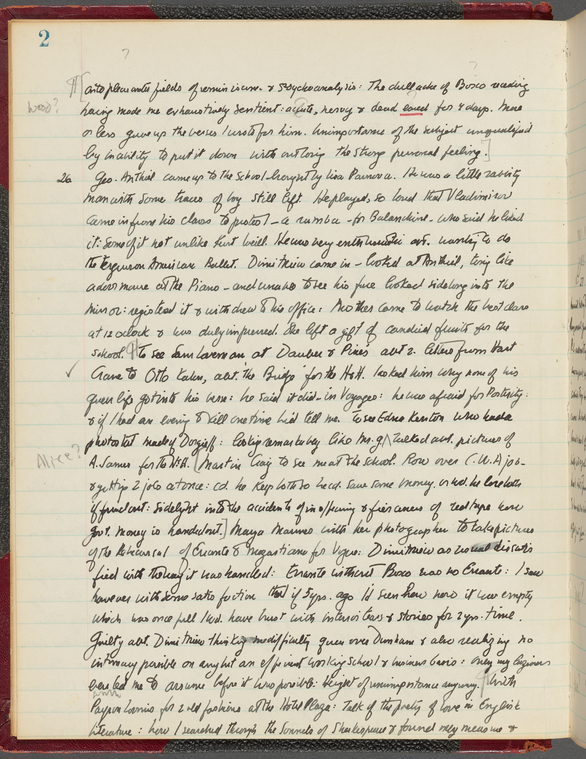 2
?
?
¶[ into pleasanter fields of reminiscence & psychoanalysis: The dull ache of Bosco reading
woz?
having made me exhaustively sentient: acute, nervy & dead loved for 4 days. More
or less give up the verses I wrote for him. Unimportance of the subject unqualified
by inability to put it down without using the strong personal feeling.]
26 Geo. Antheil came up to the School brought by Lisa Parnova. He was a little rabbity
man with some traces of boy still left. He played so loud that Vladimirov
came in from his class to protest – a rumba – for Balanchine. Who said he liked
it: Some of it not unlike Kurt Weill. He was very enthusiastic abt. wanting to do
the Ferguson American Ballet. Dimitriew came in – looked at Antheil, tiny like
a dormouse at the Piano – and unable to see his face looked sidelong into the
mirror: registered it & withdrew to his office: Mother came to watch the best class
at 12 o'clock & was duly impressed. She left a gift of candied fruits for the
School. ¶ To see Sam Loveman at Dauber & Pine's abt 2. letters from Hart
✓ Crane to Otto Kahn, abt. the 'Bridge' for the H&H. I asked him why none of his
queer life got into his verse: he said it did – in Voyages: he was afraid for Posterity:
& if I had an evening to kill one time he'd tell me. To see Edna Kenton who had a
photostat made of : looking remarkably like Mrs. g/ Talked abt. pictures of
Alice?
A. James for the H&H. [Martin Craig to see me at the School. Row over C.W.A job –
& getting 2 jobs at once: cd. he keep both so he cd. save some money, or wd. he lose both
if fraudulent: Sidelight into the accidents of in offering & fierceness of red tape how
govt. money is handed out.] Marya Mannes with her photographer to take pictures
of the Rehearsal of Errante & Mozartiana for Vogue: Dimitriew as usual dissatis
fied with the way it was handled: Errante without Bosco was no Errante: I saw
however with some satisfaction that if 5 yrs. ago I'd seen how it was empty
which was once full I wd. have burst with interest & stories for 2 yrs. time.
Guilty abt. Dimitriew thinking difficulty over Dunham & also realizing no
intimacy possible on any but an efficient working School & business basis: only my eagerness
has led me to assume before it was possible: height of unimportance anyway. ¶ With
with
Payson Loomis for 2 old fashions at the Hotel Plaza: Talk of the poetry of love in English
Literature: how I searched through the Sonnets of Shakespeare & found only measure &